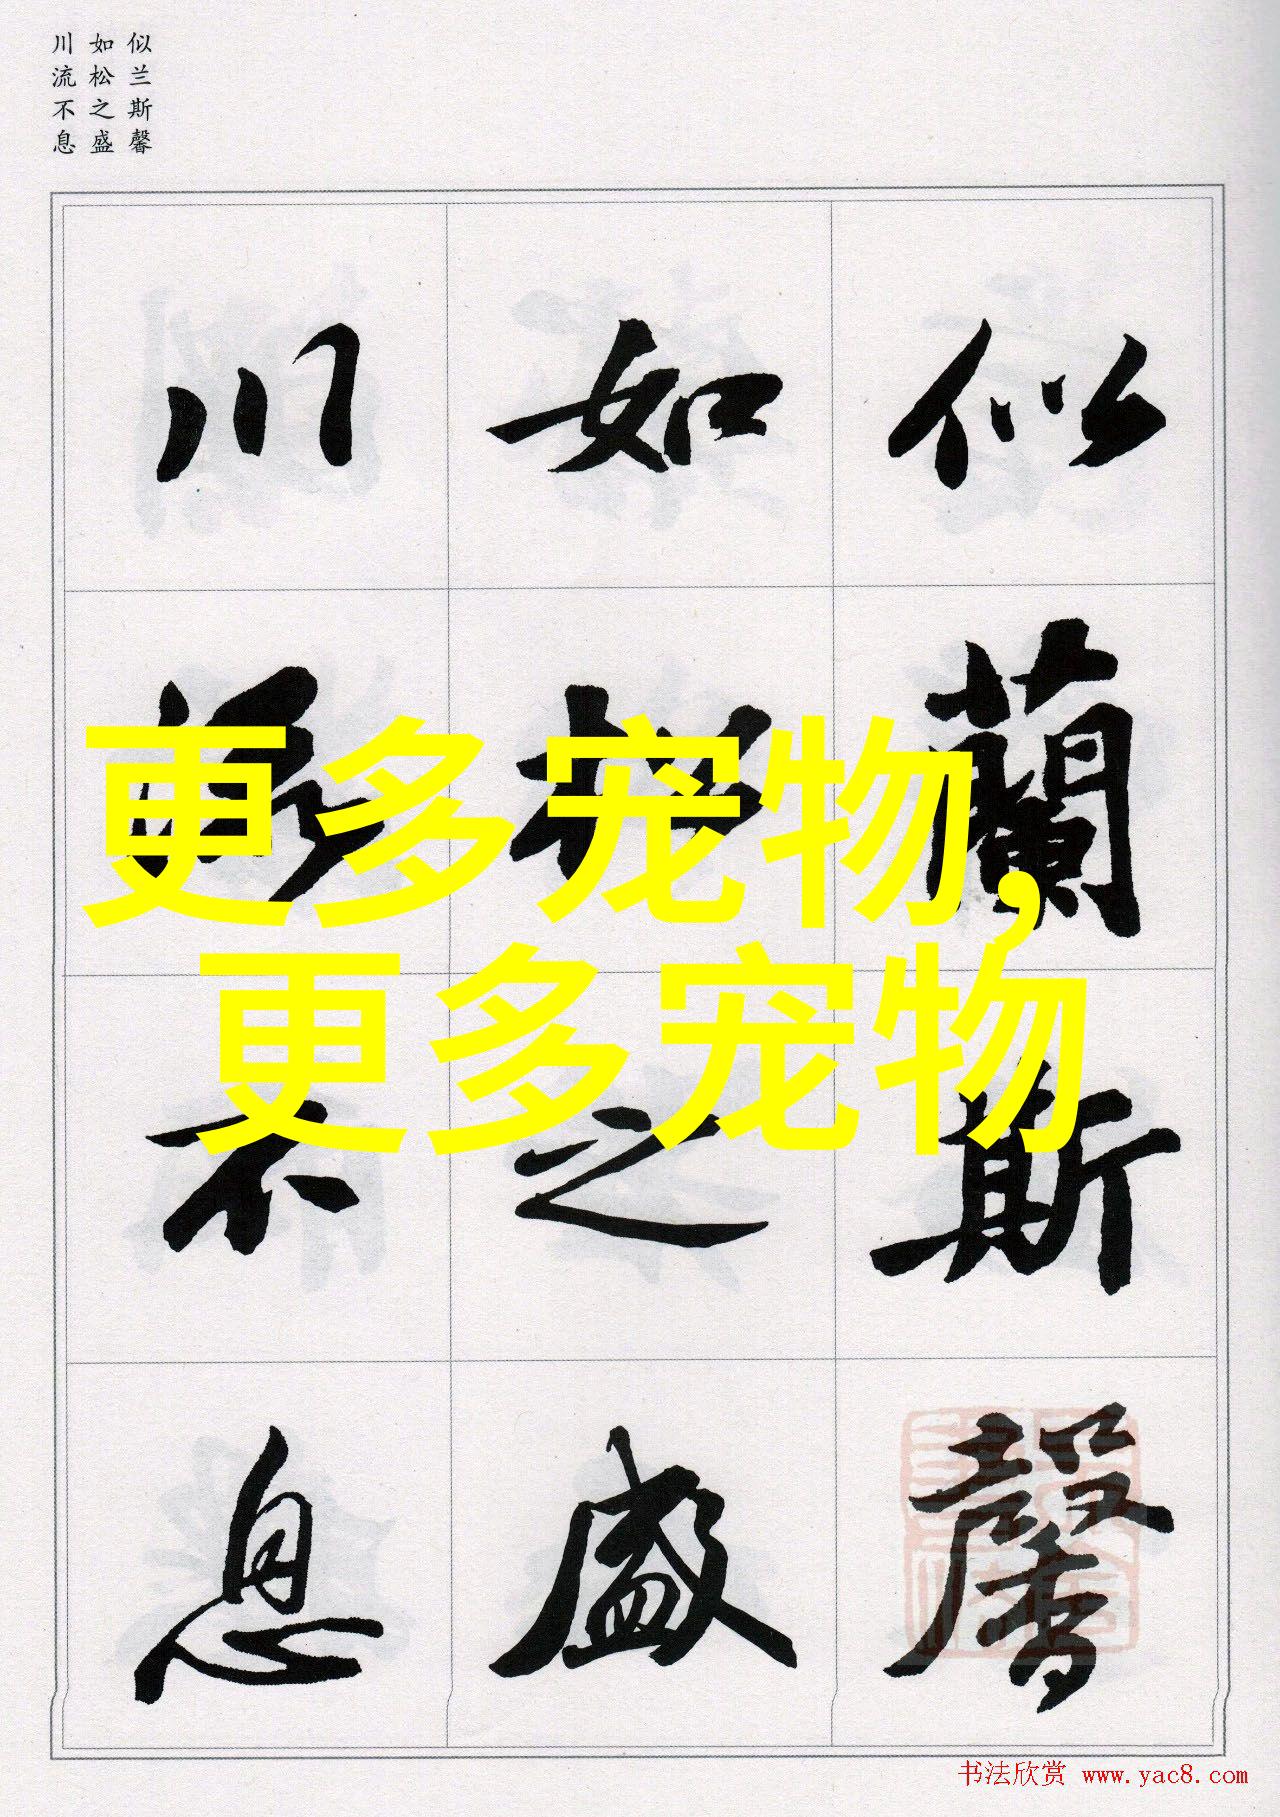 似兰斯馨
如松之盛
川流不息
似蘭斯馨
如松之盛
川流不息
更多宠物,
更多宠物
书法欣赏 www.yac8.com